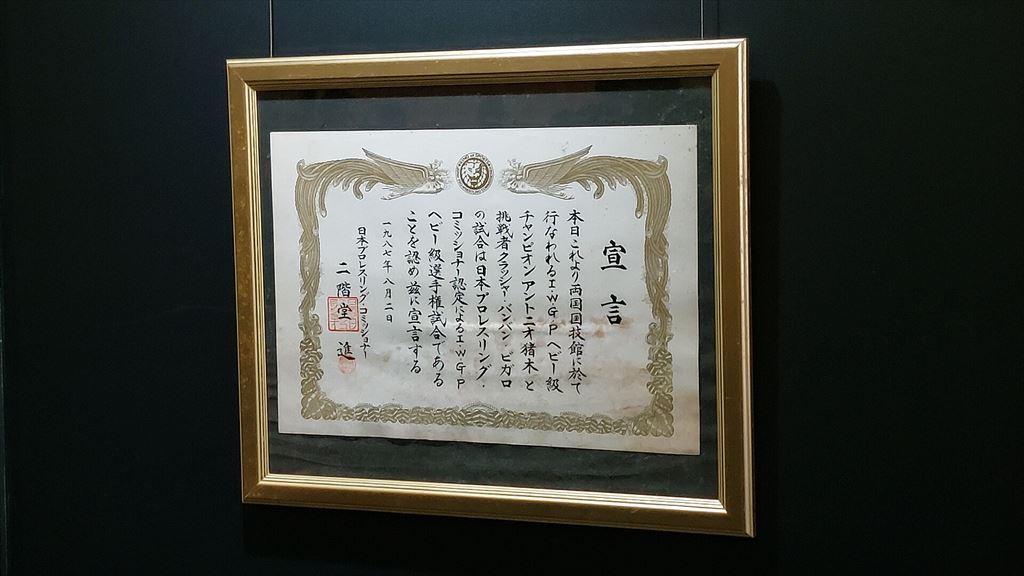 宣言
本日これより両国国技館に於て
行なわれるI・W・G・Pヘビー級
チャンピオンアントニオ猪木と
挑戦者クラッシャー・バンバン・ビガロ
の試合は日本プロレスリング・
コミッショナー認定によるI・W・G・P
ヘビー級選手権試合である
ことを認め茲に宣言する
一九八七年八月二日
日本プロレスリング・コミッショナー
二階堂進